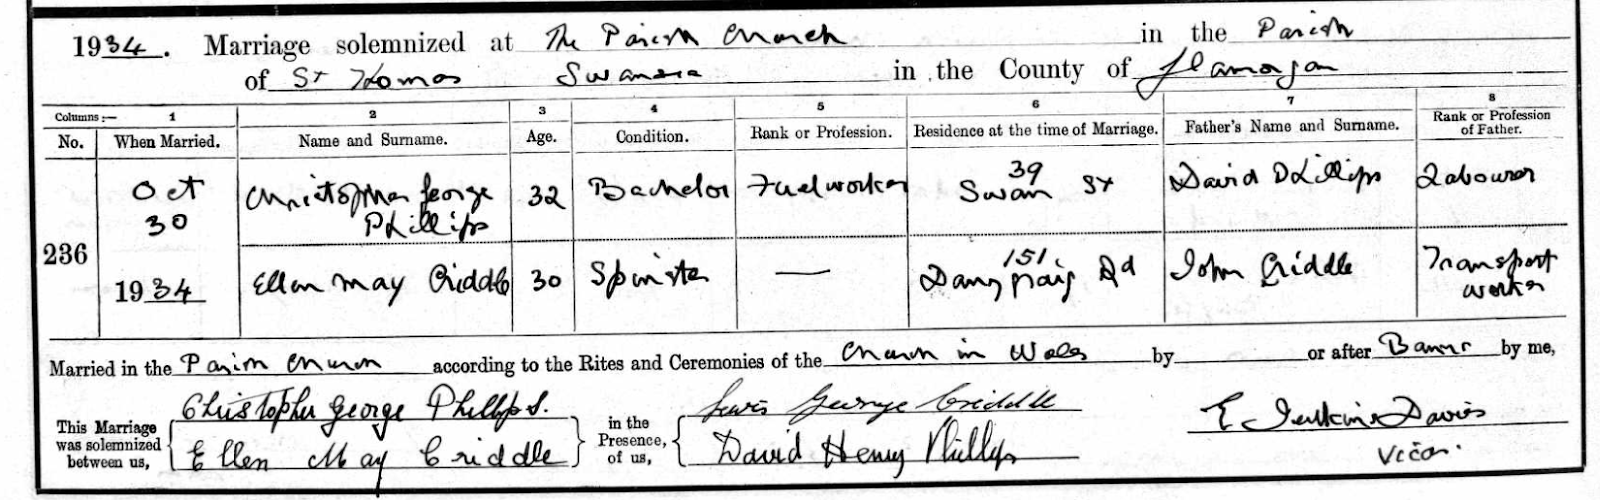 1934. Marriage solemnized at The Parish Church in the Parish
of St Thomas Swansea in the County of Glamorgan
Columns:— 1 2 3 4 5 6 7 8
No. When Married. Name and Surname. Age. Condition. Rank or Profession. Residence at the time of Marriage. Father's Name and Surname. Rank or Profession of Father.
236 Oct 30 1934 Christopher George Phillips 32 Bachelor Fuelworker 39 Swan St David Phillips Labourer
Ellen May Criddle 30 Spinster — 151 Danygraig Rd John Criddle Transport worker
Married in the Parish Church according to the Rites and Ceremonies of the Church in Wales by or after Banns by me,
This Marriage was solemnized between us, Christopher George Phillips. Ellen May Criddle in the Presence, of us, Lewis George Criddle David Henry Phillips E Jenkin Davies
Vicar.